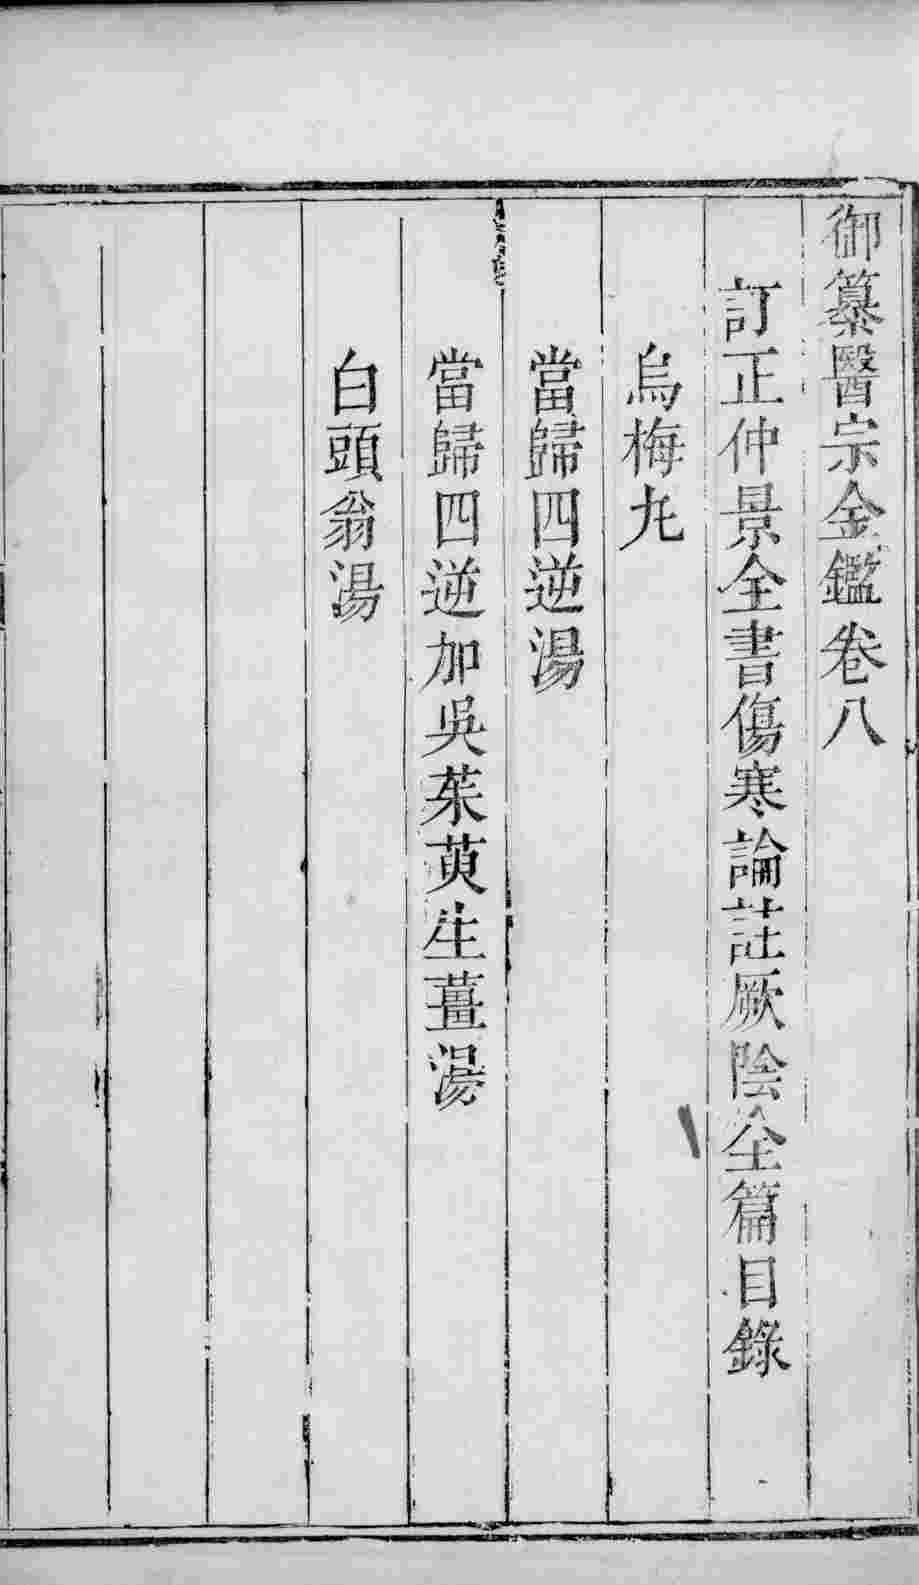 御纂醫宗金鑑卷八
訂正仲景全書傷寒論註厥陰全篇目錄
烏梅丸
當歸四逆湯
當歸四逆加吳茱萸生薑湯
白頭翁湯